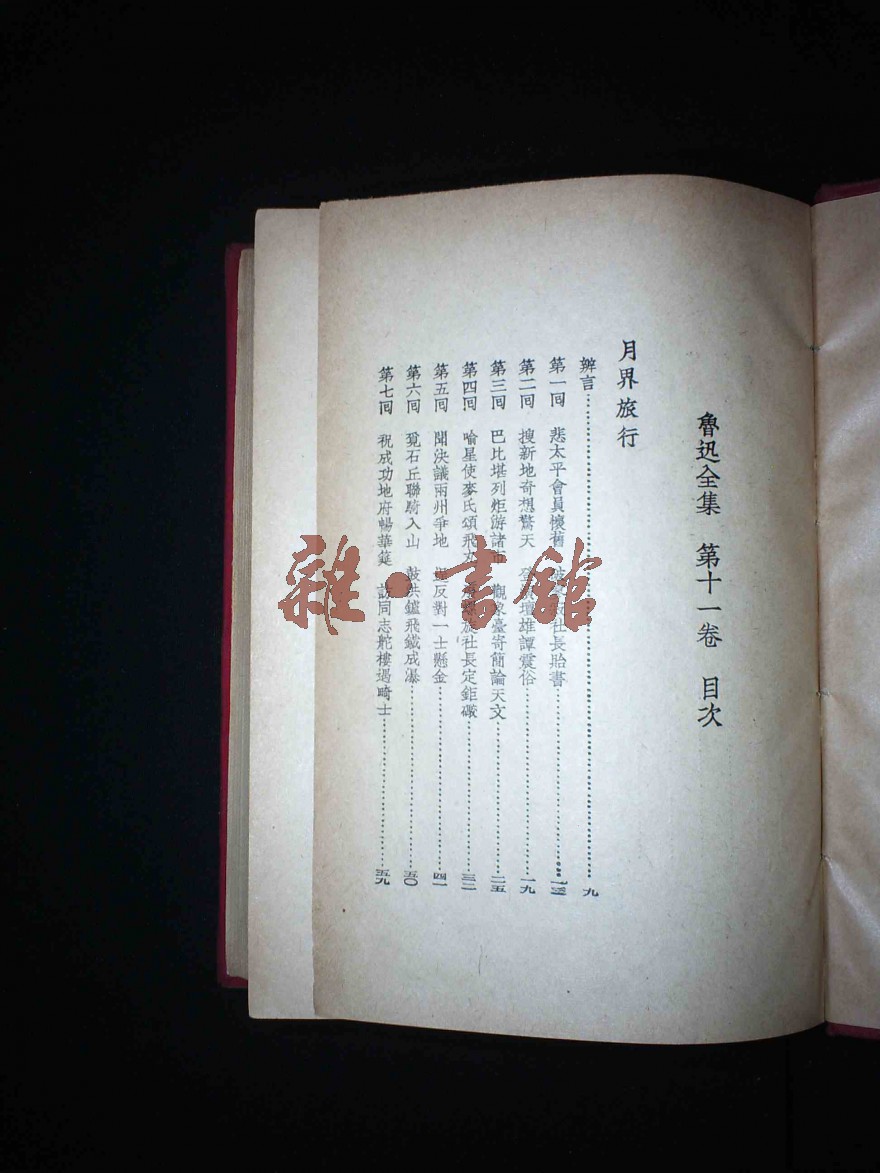 魯迅全集 第十一卷 目次
月界旅行
辨言……九
第一回 悲太平會員懷舊 社長貽書……一三
第二回 搜新地奇想驚天 壇雄譚震俗……一九
第三回 巴比堪列炬游諸 觀 臺寄簡論天文……二五
第四回 喻星使麥氏頌飛丸 旋社長定鉅礮……三二
第五回 聞決議兩州爭地 反對一士懸金……四一
第六回 覓石丘聯騎入山 鼓洪鑪飛鐵成瀑……五〇
第七回 祝成功地府暢華筵 訪同志舵樓遇畸士……五九
雜·書館